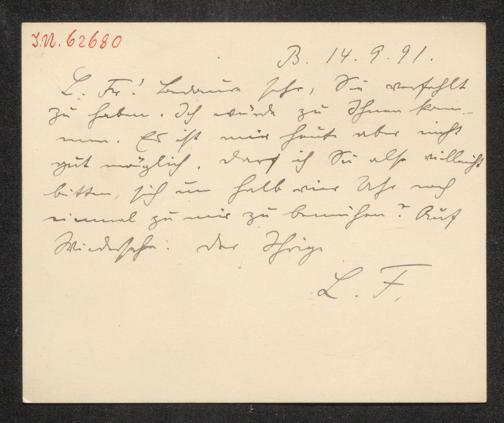 I.N. 62680
B. 14.9.91.
L. Fr.! Bedaure sehr, Sie verfehlt
zu haben. Ich würde zu Ihnen kom-
men. Es ist mir heute aber nicht
gut möglich. Darf ich Sie also vielleicht
bitten, sich um halb vier Uhr noch
einmal zu mir zu bemühen? Auf
Wiedersehn. Der Ihrige
L. F.